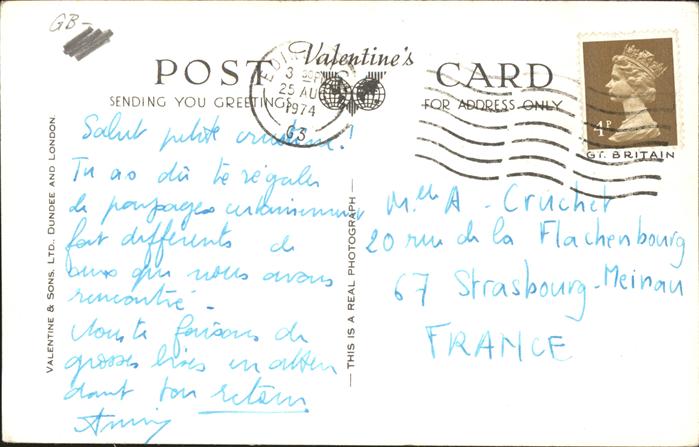 GB-
Valentine's
POST CARD
SENDING YOU GREETINGS FOR ADDRESS ONLY
3
25 AU
1974
63
4P
GT. BRITAIN
VALENTINE & SONS, LTD., DUNDEE AND LONDON.
— THIS IS A REAL PHOTOGRAPH —
Salut petite
Tu as dû te régaler
de paysages certainement
fort différents de
ceux que nous avons
rencontré -
Nous te faisons de
grosses bises en atten
dant ton retour
Melle A - Cruchet
20 rue de la Flachenbourg
67 Strasbourg-Meinau
FRANCE